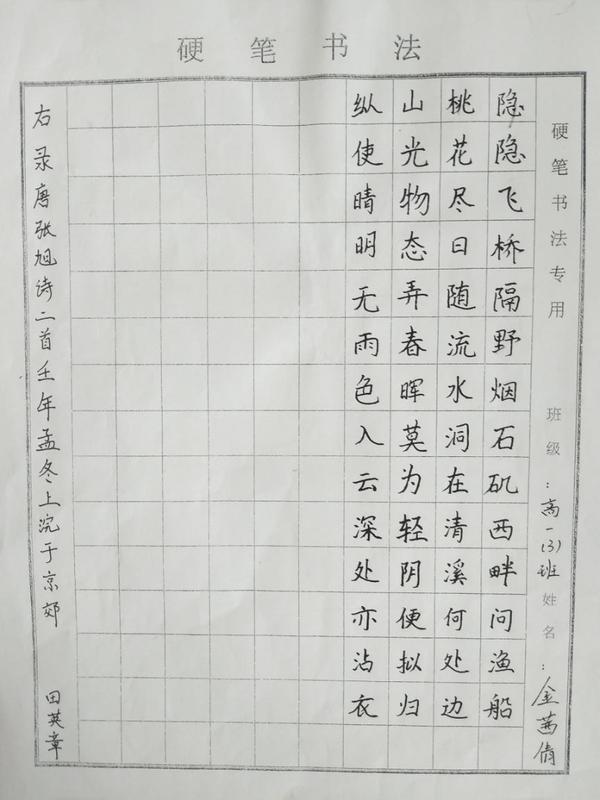 硬笔书法
硬笔书法专用 班级:高一(3)班 姓名:金茜倩
隐隐飞桥隔野烟石矶西畔问渔船
桃花尽日随流水洞在清溪何处边
山光物态弄春晖莫为轻阴便拟归
纵使晴明无雨色入云深处亦沾衣
右录唐张旭诗二首壬年孟冬上浣于京郊 田英章